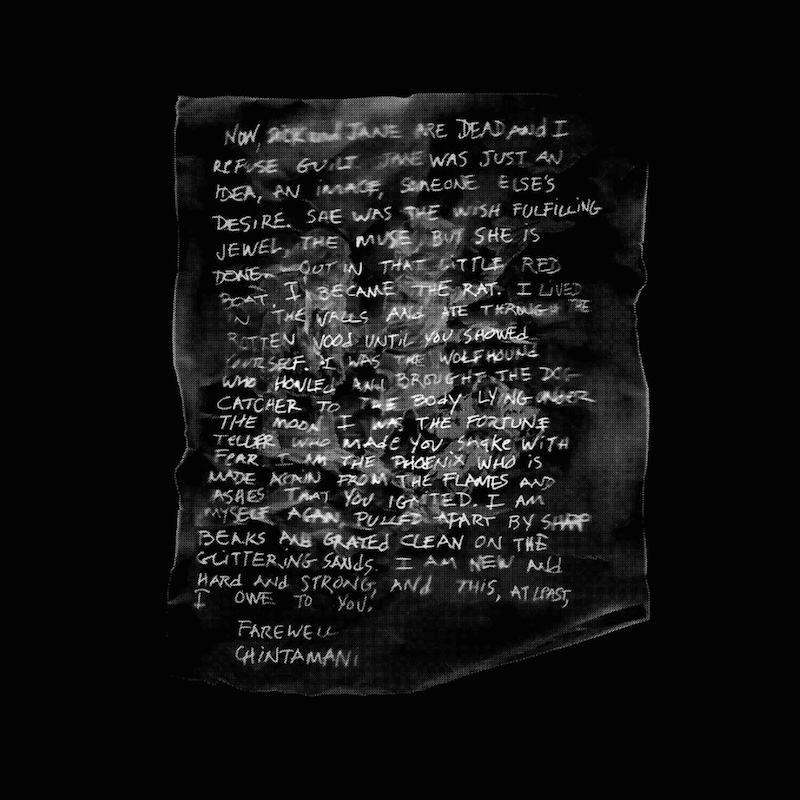 NOW, DICK and JANE ARE DEAD and I
REFUSE GUILT JANE WAS JUST AN
IDEA, AN IMAGE, SOMEONE ELSE'S
DESIRE. SHE WAS THE WISH FULFILLING
JEWEL, THE MUSE, BUT SHE IS
DONE- OUT IN THAT LITTLE RED
BOAT. I BECAME THE RAT. I LIVED
IN THE WALLS AND ATE THROUGH THE
ROTTEN WOOD UNTIL YOU SHOWED
YOURSELF. I WAS THE WOLFHOUND
WHO HOWLED AND BROUGHT THE DOG
CATCHER TO THE BODY LYING UNDER
THE MOON I WAS THE FORTUNE
TELLER WHO MADE YOU SHAKE WITH
FEAR. I AM THE PHOENIX WHO IS
MADE AGAIN FROM THE FLAMES AND
ASHES THAT YOU IGNITED. I AM
MYSELF AGAIN PULLED APART BY SHARP
BEAKS AND GRATED CLEAN ON THE
GLITTERING SANDS. I AM NEW AND
HARD AND STRONG, AND THIS, AT LEAST,
I OWE TO YOU.
FAREWELL
CHINTAMANI